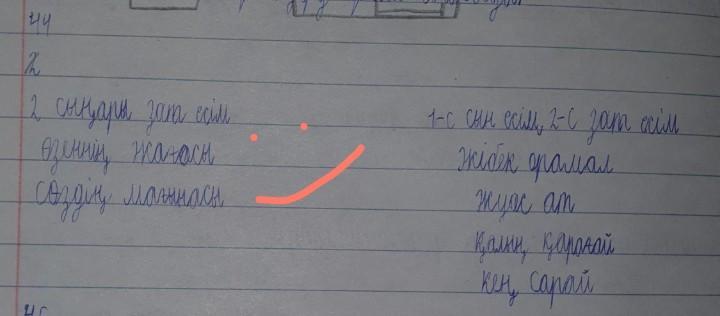 44
2
2 сыңары зат есім
өзеннің жағасы
сөздің мағынасы
1-с сын есім, 2-с зат есім
Жібек орамал
Жуас ат
қалың қарағай
кең сарай